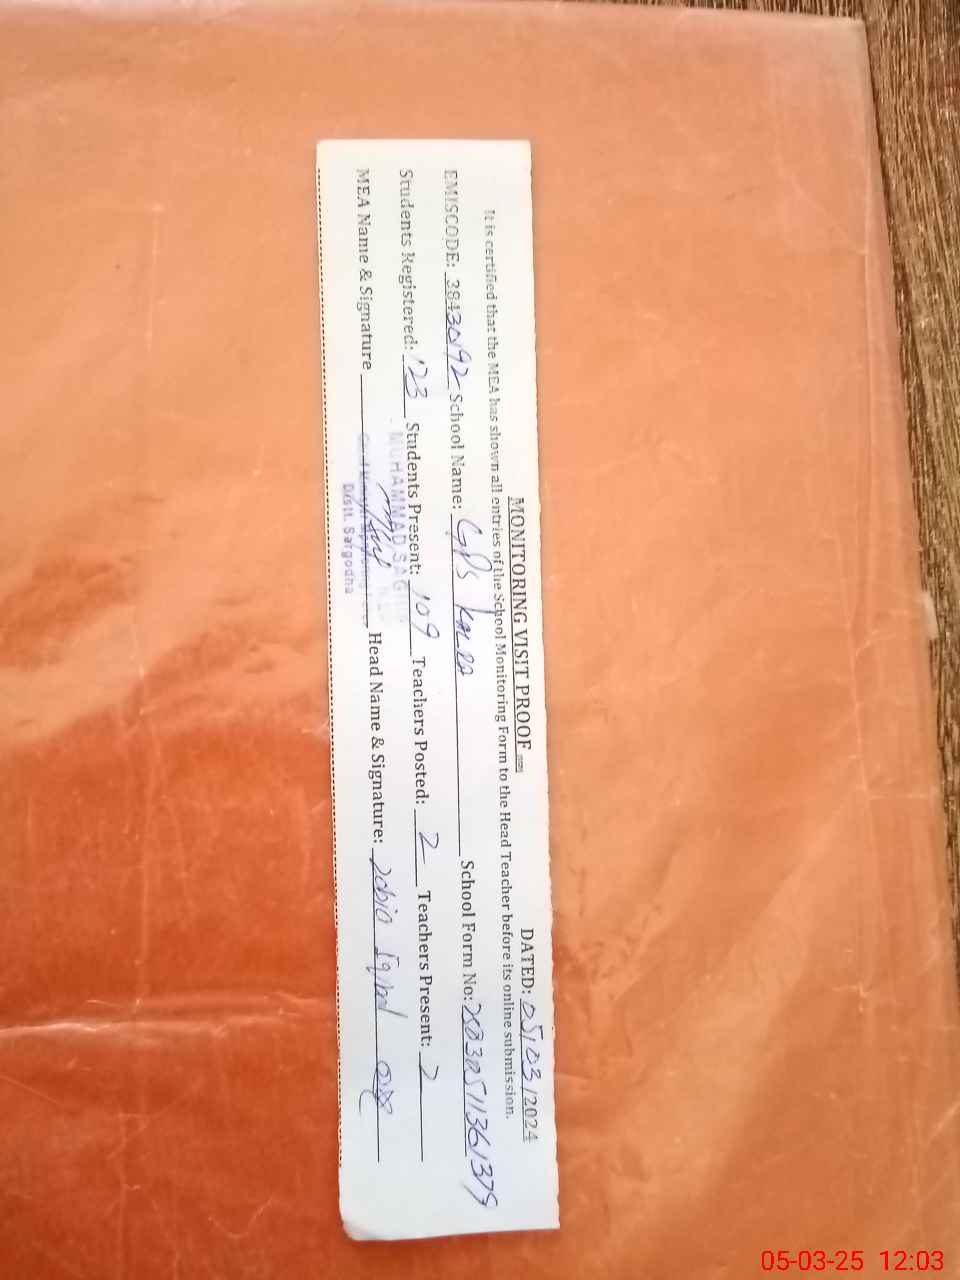 MONITORING VISIT PROOF
DATED: 05/03/2024
It is certified that the MEA has shown all entries of the School Monitoring Form to the Head Teacher before its online submission.
EMISCODE: 38430192 School Name: GPS KALRA School Form No:
Students Registered: 123 Students Present: 109 Teachers Posted: 2 Teachers Present: 2
MUHAMMAD
MEA Name & Signature Head Name & Signature: Iqbal
Distt. Sargodha
05-03-25 12:03